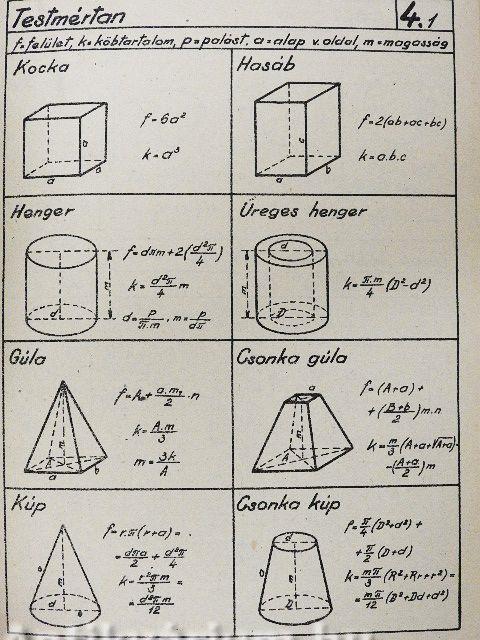 Testmértan 4.1
f=felület, k=köbtartalom, p=palást, a=alap v. oldal, m=magasság
Kocka
f=6a²
k=a³
a
a
a
Hasáb
f=2(ab+ac+bc)
k=a.b.c
a
b
c
Henger
f=dπm+2(d²π/4)
k=d²π/4 m
d=p/π.m, m=p/dπ
m
d
Üreges henger
k=π.m/4 (D²-d²)
d
m
D
Gúla
f=A+a.m₁/2 .n
k=A.m/3
m=3k/A
A
a
b
Csonka gúla
f=(A+a)+
+(B+b/2)m.n
k=m/3(A+a+√A+a)-
-(A+a/2)m
a
A
Kúp
f=r.π(r+a)=
=dπa/2+d²π/4
k=r²πm/3=
=d²πm/12
d
Csonka kúp
f=π/4(D²+d²)+
+π/2(D+d)
k=mπ/3(R²+Rr+r²)=
=mπ/12(D²+Dd+d²)
d
D